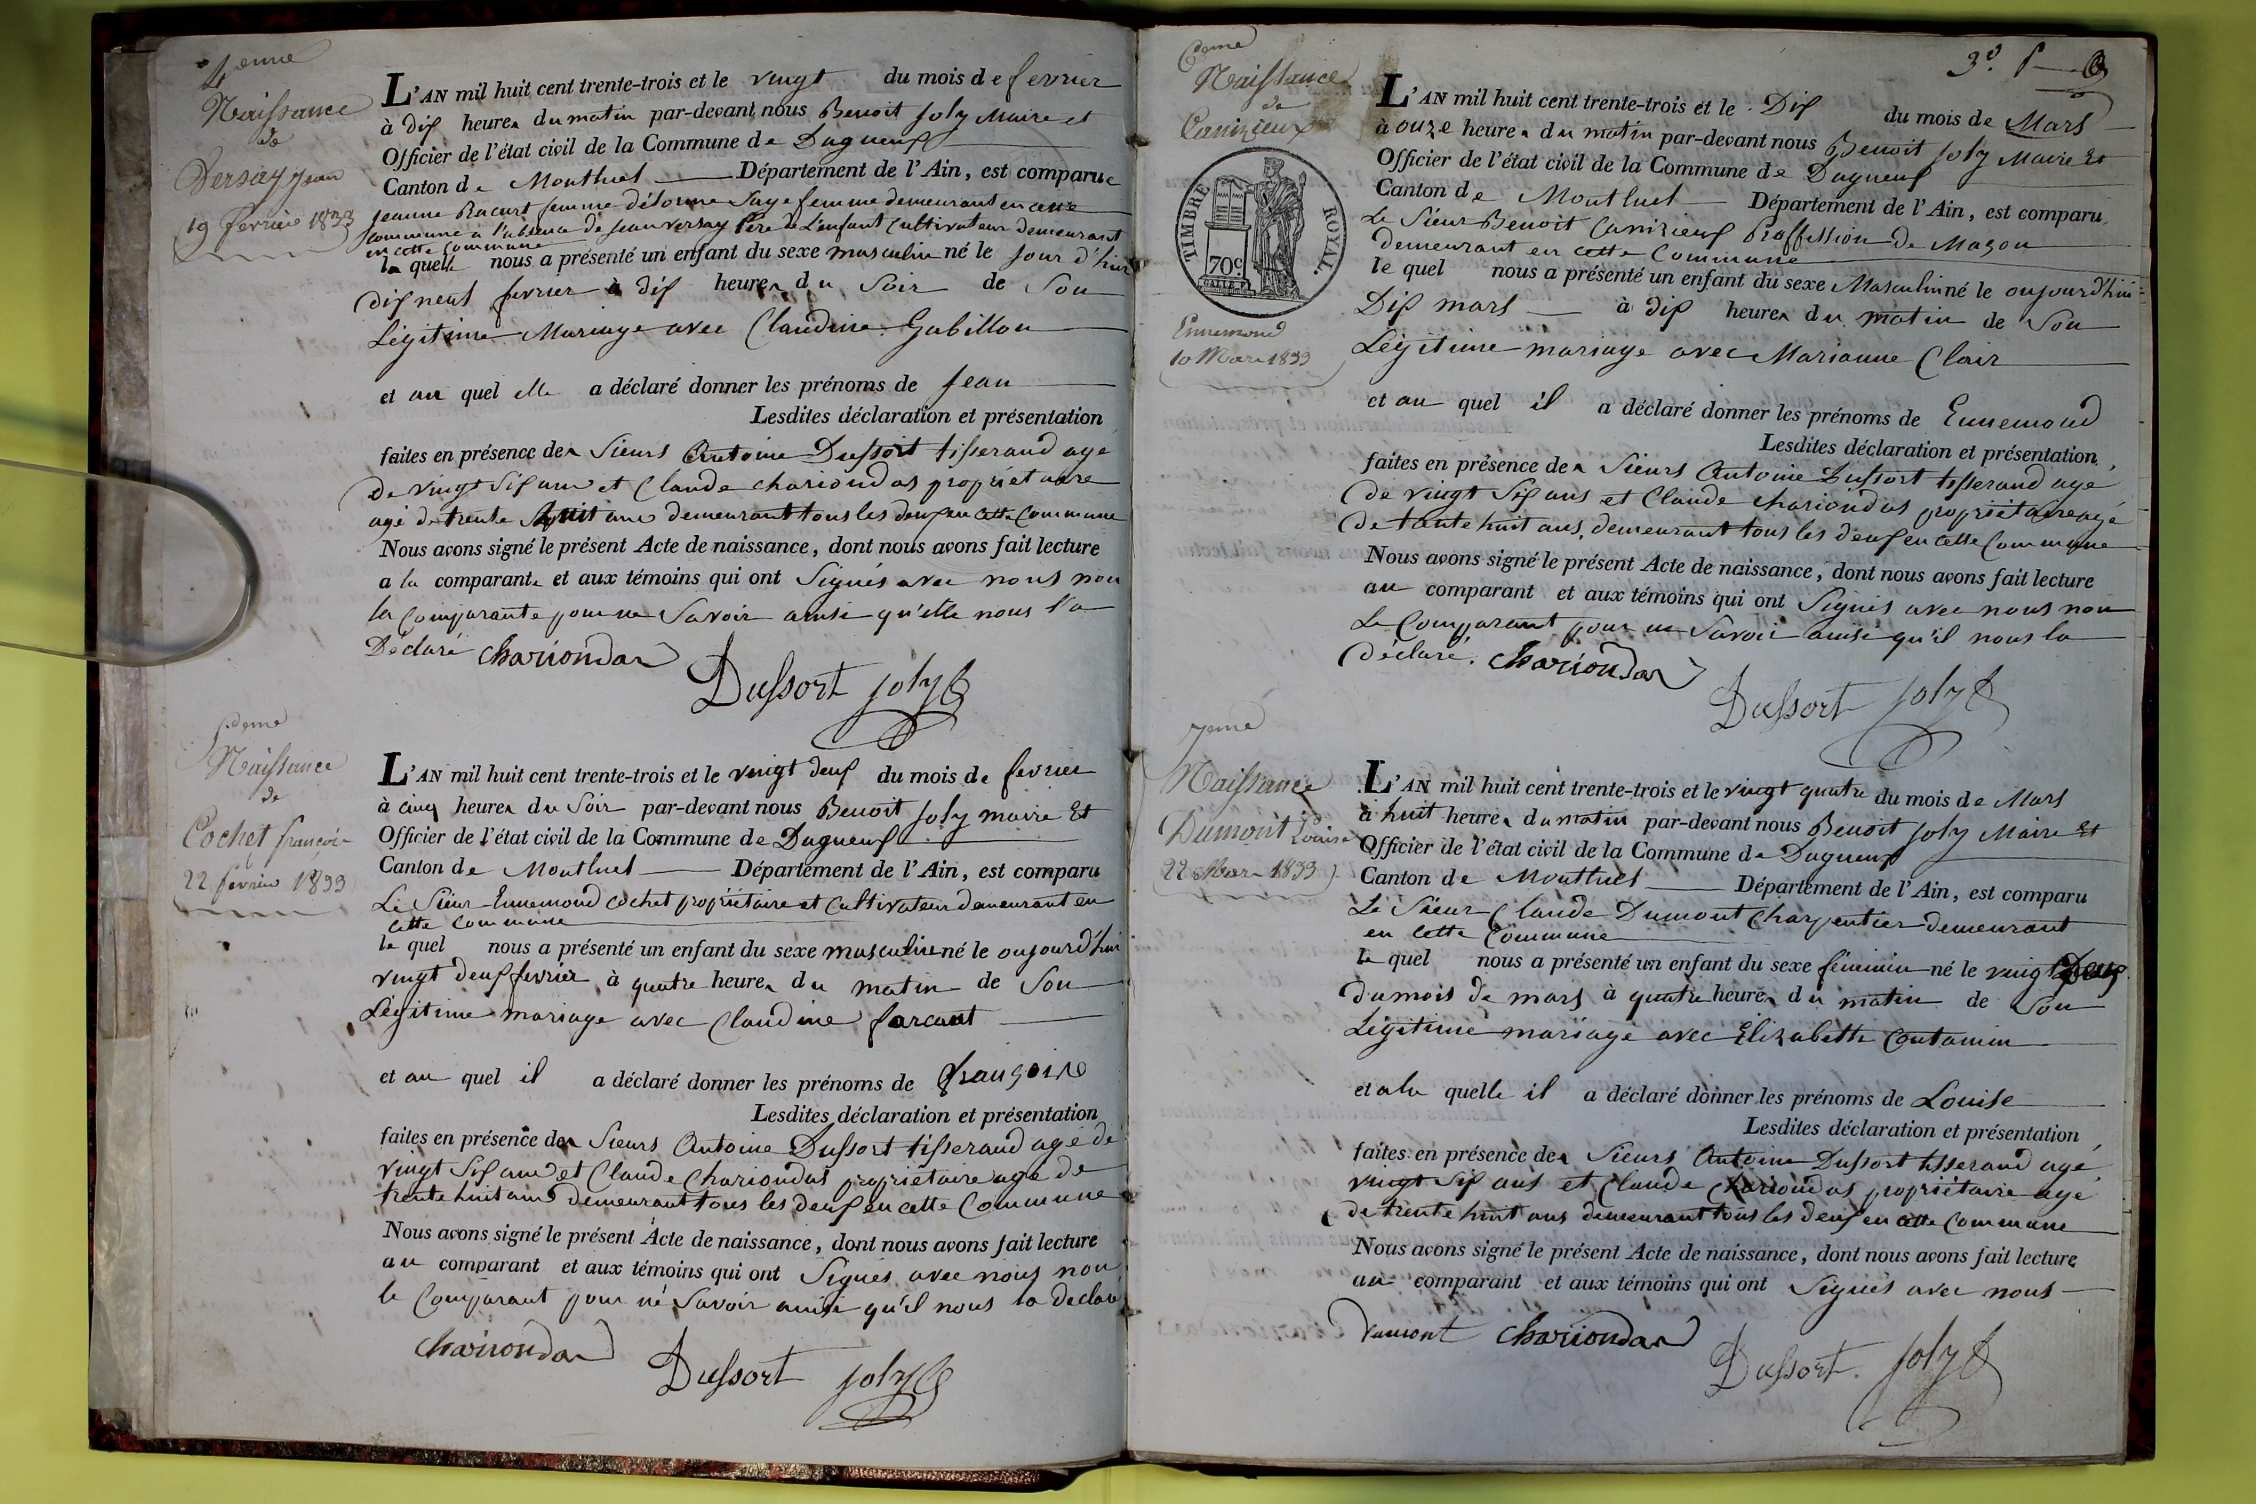 4eme
Naissance
de
Versay Jean
19 fevrier 1833
L'AN mil huit cent trente-trois et le vingt du mois de fevrier
à dix heures du matin par-devant nous Benoit Joly Maire et
Officier de l'état civil de la Commune de Dagneux
Canton de Montluel Département de l'Ain, est comparue
Jeanne Racurt femme délorme Sage femme demeurant en cette
commune à l'absence de Jean Versay Père de L'enfant Cultivateur demeurant
en cette Commune
la quelle nous a présenté un enfant du sexe masculin né le Jour d'hier
dix neuf fevrier à dix heures du Soir de Son
Légitime Mariage avec Claudine Gubillon
et au quel elle a déclaré donner les prénoms de Jean
Lesdites déclaration et présentation
faites en présence des Sieurs Antoine Dussort tisserand agé
de vingt Six ans et Claude chariondas propriétaire
agé de trente huit ans demeurant tous les deux en cette Commune
Nous avons signé le présent Acte de naissance, dont nous avons fait lecture
a la comparante et aux témoins qui ont Signés avec nous non
la Comparante pour ne Savoir ainsi qu'elle nous l'a
Déclaré chariondas
Dussort Joly
5eme
Naissance
de
Cochet françois
22 fevrier 1833
L'AN mil huit cent trente-trois et le vingt deux du mois de fevrier
à cinq heures du Soir par-devant nous Benoit Joly maire Et
Officier de l'état civil de la Commune de Dagneux
Canton de Montluel Département de l'Ain, est comparu
Le Sieur Ennemond Cochet propriétaire et Cultivateur demeurant en
cette Commune
le quel nous a présenté un enfant du sexe masculin né le aujourd'hui
vingt deux fevrier à quatre heures du matin de Son
Légitime mariage avec Claudine farcaut
et au quel il a déclaré donner les prénoms de françois
Lesdites déclaration et présentation
faites en présence des Sieurs Antoine Dussort tisserand agé de
vingt Six ans et Claude Chariondas propriétaire agé de
trente huit ans demeurant tous les deux en cette Commune
Nous avons signé le présent Acte de naissance, dont nous avons fait lecture
au comparant et aux témoins qui ont Signés avec nous non
le Comparant pour ne Savoir ainsi qu'il nous la declaré
chariondas
Dussort Joly
3e
6eme
Naissance
de
Canizieux
TIMBRE ROYAL.
70c
Ennemond
10 Mars 1833
L'AN mil huit cent trente-trois et le Dix du mois de Mars
à onze heures du matin par-devant nous Benoit Joly Maire Et
Officier de l'état civil de la Commune de Dagneux
Canton de Montluel Département de l'Ain, est comparu
Le Sieur Benoit Canizieux Proffession de Maçon
demeurant en cette Commune
le quel nous a présenté un enfant du sexe Masculin né le aujourd'hui
Dix mars à dix heures du matin de Son
Légitime mariage avec Marianne Clair
et au quel il a déclaré donner les prénoms de Ennemond
Lesdites déclaration et présentation
faites en présence des Sieurs Antoine Dussort tisserand agé
de vingt Six ans et Claude chariondas propriétaire agé
de trante huit ans, demeurant tous les deux en cette Commune
Nous avons signé le présent Acte de naissance, dont nous avons fait lecture
au comparant et aux témoins qui ont Signés avec nous non
Le Comparant pour ne Savoir ainsi qu'il nous la
déclaré. chariondas
Dussort Joly
7eme
Naissance
Dumont Louise
22 Mars 1833
L'AN mil huit cent trente-trois et le vingt quatre du mois de Mars
à huit heures du matin par-devant nous Benoit Joly Maire Et
Officier de l'état civil de la Commune de Dagneux
Canton de Montluel Département de l'Ain, est comparu
Le Sieur Claude Dumont Charpentier demeurant
en cette Commune
le quel nous a présenté un enfant du sexe féminin né le vingt Deux
du mois de mars à quatre heures du matin de Son
Légitime mariage avec Elizabette Contamin
et a la quelle il a déclaré donner les prénoms de Louise
Lesdites déclaration et présentation
faites en présence des Sieurs Antoine Dussort tisserand agé
vingt Six ans et Claude Chariondas propriétaire agé
de trente huit ans demeurant tous les deux en cette Commune
Nous avons signé le présent Acte de naissance, dont nous avons fait lecture
au comparant et aux témoins qui ont Signés avec nous
Dumont chariondas
Dussort Joly